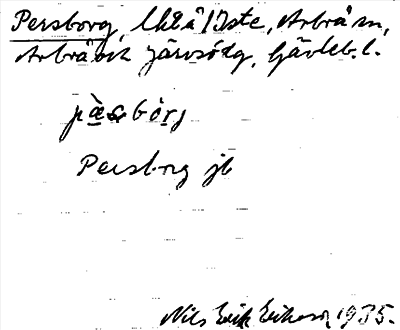 Persborg, Ukså/Iste, Arbrå sn,
Arbrå och Järvsö tg, Gävleb. l.
pæ̀sbór̨j
Persborg jb
Nils Erik Eriksson 1935.